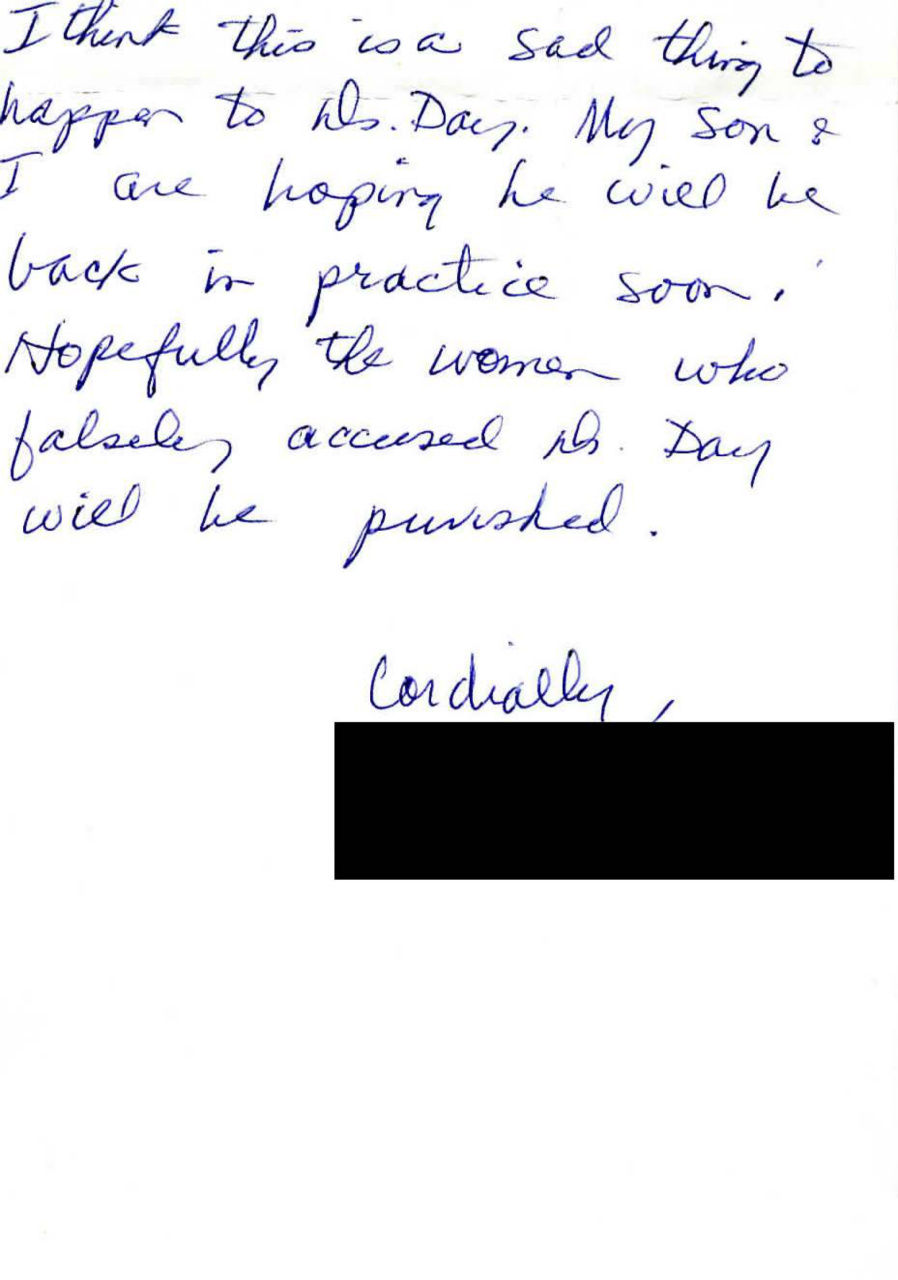 I think this is a sad thing to
happen to Dr. Day. My son &
I are hoping he will be
back in practice soon.
Hopefully the women who
falsely accused Dr. Day
will be punished.
Cordially,